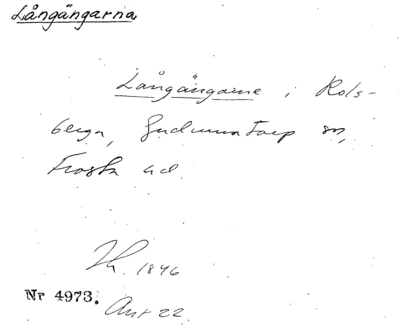 Långängarna
Långängarne i Rols-
berga, Gudmuntorp sn,
Frosta hd.
1846
Nr 4973.
Ant 22.